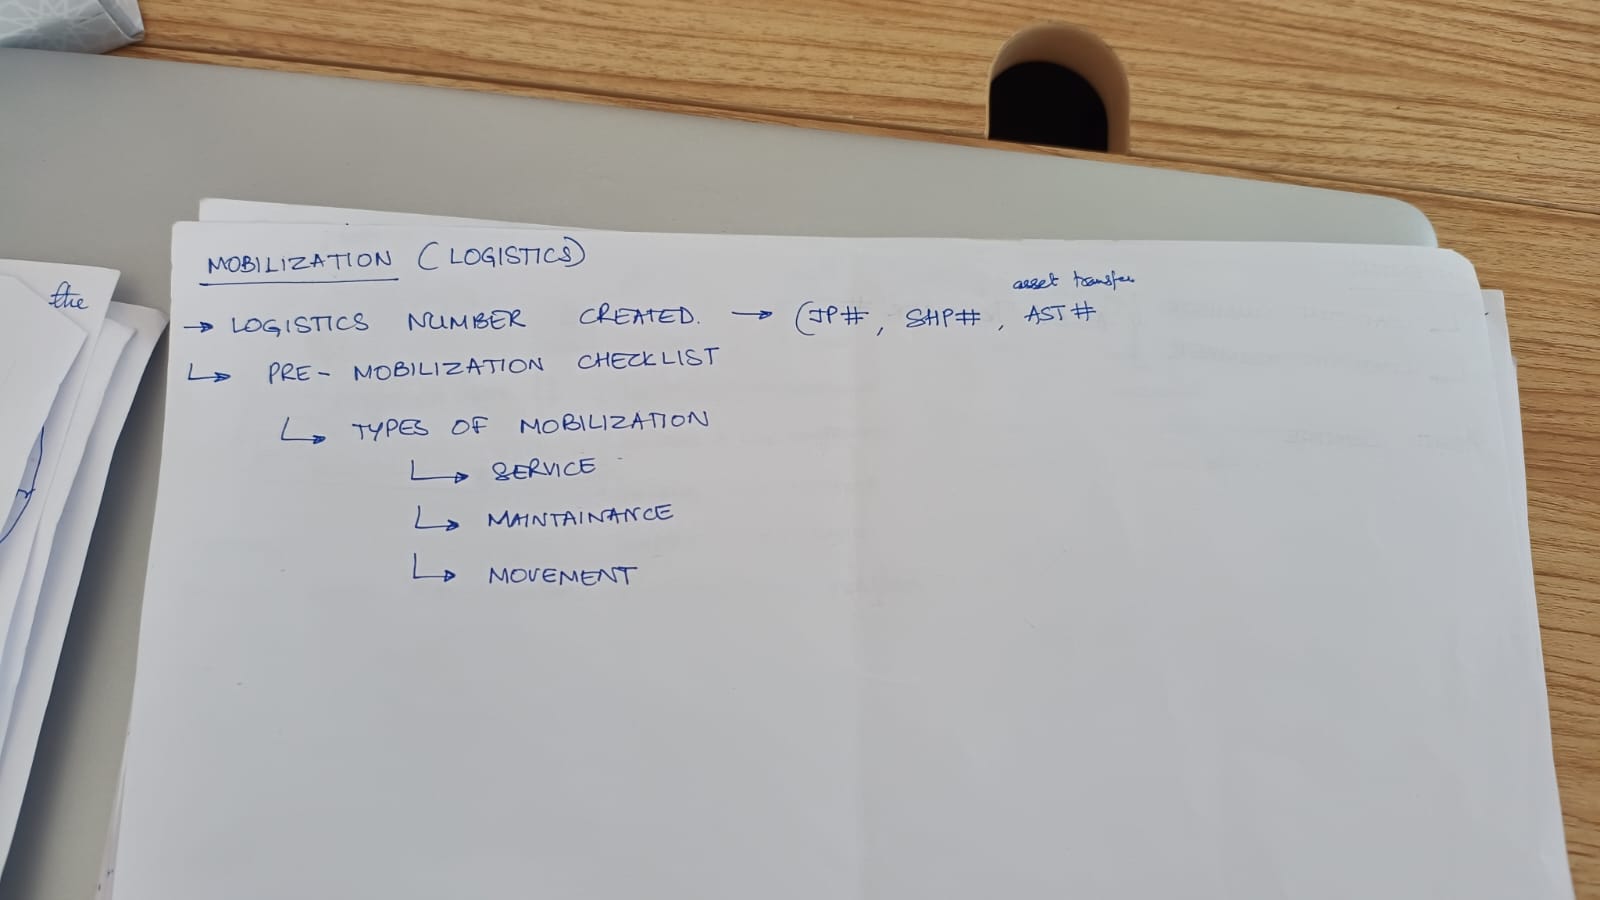 the
MOBILIZATION (LOGISTICS)
asset transfer
→ LOGISTICS NUMBER CREATED. → (JP#, SHP#, AST#
↳ PRE- MOBILIZATION CHECKLIST
↳ TYPES OF MOBILIZATION
↳ SERVICE
↳ MAINTAINANCE
↳ MOVEMENT